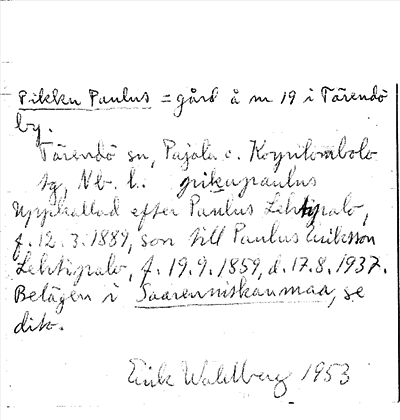 Pikku Paulus = gård å nr 19 i Tärendö
by.
Tärendö sn, Pajala o. Korpilombolo
tg, Nb. l. pikupaulus
Uppkallad efter Paulus Lehtipalo,
f. 12.3.1889, son till Paulus Eriksson
Lehtipalo, f. 19.9.1859, d. 17.8.1937.
Belägen i Saarenniskanmaa, se
dito.
Erik Wahlberg 1953